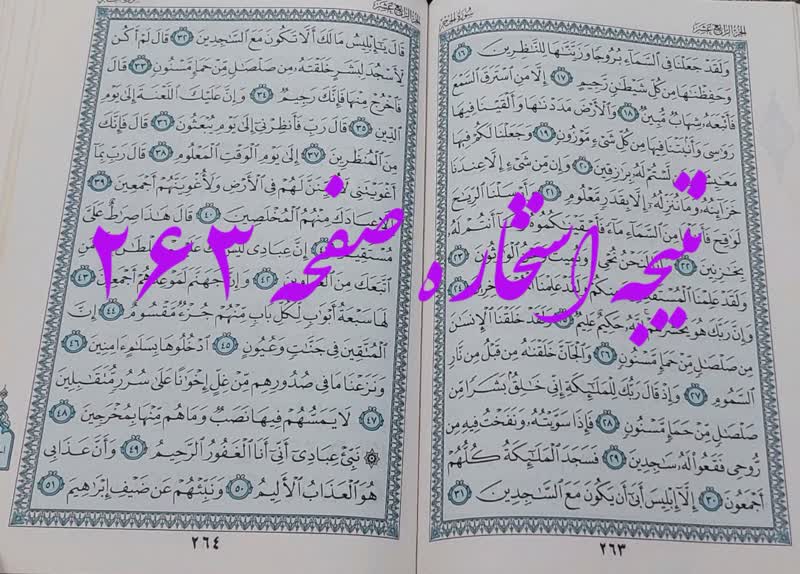 الجزء الرابع عشر
سورة الحجر
وَلَقَدْ جَعَلْنَا فِي ٱلسَّمَآءِ بُرُوجًا وَزَيَّنَّـٰهَا لِلنَّـٰظِرِينَ ١٦
وَحَفِظْنَـٰهَا مِن كُلِّ شَيْطَـٰنٍ رَّجِيمٍ ١٧ إِلَّا مَنِ ٱسْتَرَقَ ٱلسَّمْعَ
فَأَتْبَعَهُۥ شِهَابٌ مُّبِينٌ ١٨ وَٱلْأَرْضَ مَدَدْنَـٰهَا وَأَلْقَيْنَا فِيهَا
رَوَٰسِيَ وَأَنۢبَتْنَا فِيهَا مِن كُلِّ شَيْءٍ مَّوْزُونٍ ١٩ وَجَعَلْنَا لَكُمْ فِيهَا
مَعَـٰيِشَ وَمَن لَّسْتُمْ لَهُۥ بِرَٰزِقِينَ ٢٠ وَإِن مِّن شَيْءٍ إِلَّا عِندَنَا
خَزَآئِنُهُۥ وَمَا نُنَزِّلُهُۥٓ إِلَّا بِقَدَرٍ مَّعْلُومٍ ٢١ وَأَرْسَلْنَا ٱلرِّيَـٰحَ
لَوَٰقِحَ فَأَنزَلْنَا مِنَ ٱلسَّمَآءِ مَآءً فَأَسْقَيْنَـٰكُمُوهُ وَمَآ أَنتُمْ لَهُۥ
بِخَـٰزِنِينَ ٢٢ وَإِنَّا لَنَحْنُ نُحْيِۦ وَنُمِيتُ وَنَحْنُ ٱلْوَٰرِثُونَ ٢٣
وَلَقَدْ عَلِمْنَا ٱلْمُسْتَقْدِمِينَ مِنكُمْ وَلَقَدْ عَلِمْنَا ٱلْمُسْتَـْٔخِرِينَ ٢٤
وَإِنَّ رَبَّكَ هُوَ يَحْشُرُهُمْ إِنَّهُۥ حَكِيمٌ عَلِيمٌ ٢٥ وَلَقَدْ خَلَقْنَا ٱلْإِنسَـٰنَ
مِن صَلْصَـٰلٍ مِّنْ حَمَإٍ مَّسْنُونٍ ٢٦ وَٱلْجَآنَّ خَلَقْنَـٰهُ مِن قَبْلُ مِن نَّارِ
ٱلسَّمُومِ ٢٧ وَإِذْ قَالَ رَبُّكَ لِلْمَلَـٰٓئِكَةِ إِنِّي خَـٰلِقٌۢ بَشَرًا مِّن
صَلْصَـٰلٍ مِّنْ حَمَإٍ مَّسْنُونٍ ٢٨ فَإِذَا سَوَّيْتُهُۥ وَنَفَخْتُ فِيهِ مِن
رُّوحِي فَقَعُوا۟ لَهُۥ سَـٰجِدِينَ ٢٩ فَسَجَدَ ٱلْمَلَـٰٓئِكَةُ كُلُّهُمْ
أَجْمَعُونَ ٣٠ إِلَّآ إِبْلِيسَ أَبَىٰٓ أَن يَكُونَ مَعَ ٱلسَّـٰجِدِينَ ٣١
٢٦٣
الجزء الرابع عشر
قَالَ يَـٰٓإِبْلِيسُ مَا لَكَ أَلَّا تَكُونَ مَعَ ٱلسَّـٰجِدِينَ ٣٢ قَالَ لَمْ أَكُن
لِّأَسْجُدَ لِبَشَرٍ خَلَقْتَهُۥ مِن صَلْصَـٰلٍ مِّنْ حَمَإٍ مَّسْنُونٍ ٣٣ قَالَ
فَٱخْرُجْ مِنْهَا فَإِنَّكَ رَجِيمٌ ٣٤ وَإِنَّ عَلَيْكَ ٱللَّعْنَةَ إِلَىٰ يَوْمِ
ٱلدِّينِ ٣٥ قَالَ رَبِّ فَأَنظِرْنِيٓ إِلَىٰ يَوْمِ يُبْعَثُونَ ٣٦ قَالَ فَإِنَّكَ
مِنَ ٱلْمُنظَرِينَ ٣٧ إِلَىٰ يَوْمِ ٱلْوَقْتِ ٱلْمَعْلُومِ ٣٨ قَالَ رَبِّ بِمَآ
أَغْوَيْتَنِي لَأُزَيِّنَنَّ لَهُمْ فِي ٱلْأَرْضِ وَلَأُغْوِيَنَّهُمْ أَجْمَعِينَ ٣٩
إِلَّا عِبَادَكَ مِنْهُمُ ٱلْمُخْلَصِينَ ٤٠ قَالَ هَـٰذَا صِرَٰطٌ عَلَيَّ
مُسْتَقِيمٌ ٤١ إِنَّ عِبَادِي لَيْسَ لَكَ عَلَيْهِمْ سُلْطَـٰنٌ إِلَّا مَنِ
ٱتَّبَعَكَ مِنَ ٱلْغَاوِينَ ٤٢ وَإِنَّ جَهَنَّمَ لَمَوْعِدُهُمْ أَجْمَعِينَ ٤٣
لَهَا سَبْعَةُ أَبْوَٰبٍ لِّكُلِّ بَابٍ مِّنْهُمْ جُزْءٌ مَّقْسُومٌ ٤٤ إِنَّ
ٱلْمُتَّقِينَ فِي جَنَّـٰتٍ وَعُيُونٍ ٤٥ ٱدْخُلُوهَا بِسَلَـٰمٍ ءَامِنِينَ ٤٦
وَنَزَعْنَا مَا فِي صُدُورِهِم مِّنْ غِلٍّ إِخْوَٰنًا عَلَىٰ سُرُرٍ مُّتَقَـٰبِلِينَ
٤٧ لَا يَمَسُّهُمْ فِيهَا نَصَبٌ وَمَا هُم مِّنْهَا بِمُخْرَجِينَ ٤٨
۞ نَبِّئْ عِبَادِيٓ أَنِّيٓ أَنَا ٱلْغَفُورُ ٱلرَّحِيمُ ٤٩ وَأَنَّ عَذَابِي
هُوَ ٱلْعَذَابُ ٱلْأَلِيمُ ٥٠ وَنَبِّئْهُمْ عَن ضَيْفِ إِبْرَٰهِيمَ ٥١
٢٦٤
نتیجه استخاره صفحه ۲۶۳